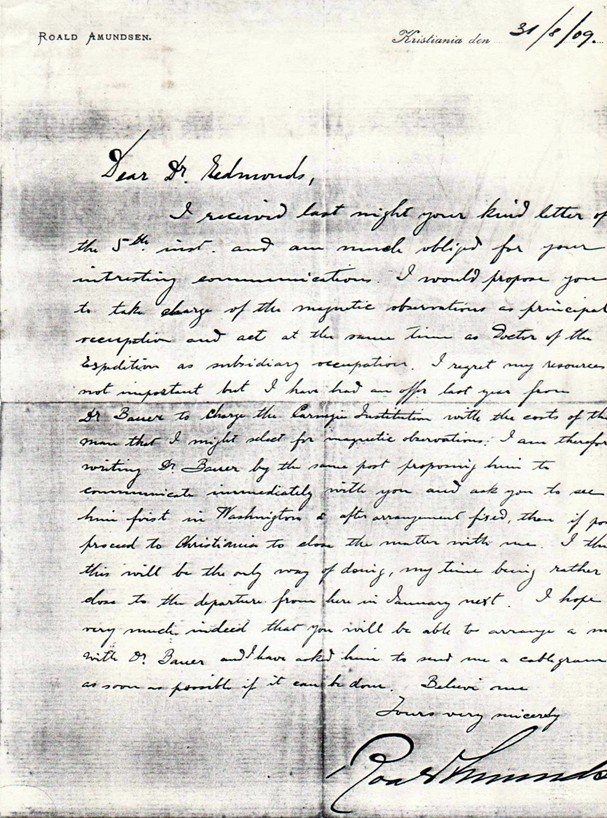 ROALD AMUNDSEN.
Kristiania den 31/8/09.
Dear Dr. Edmonds,
I received last night your kind letter of
the 5th inst. and am much obliged for your
intresting communications. I would propose you
to take charge of the magnetic observations as principal
occupation and act at the same time as Doctor of the
Expedition as subsidiary occupation. I regret my resources
not important but I have had an offer last year from
Dr Bauer to charge the Carnegie Institution with the costs of the
man that I might select for magnetic observations. I am therefor
writing Dr. Bauer by the same post proposing him to
communicate immediately with you and ask you to see
him first in Washington & after arrangement fixed, then if pos
proceed to Christiania to close the matter with me. I thi
this will be the only way of doing, my time being rather
close to the departure from here in January next. I hope
very much indeed that you will be able to arrange a m
with Dr. Bauer and I have asked him to send me a cablegram
as soon as possible if it can be done. Believe me
Yours very sincerely
Roald Amundse